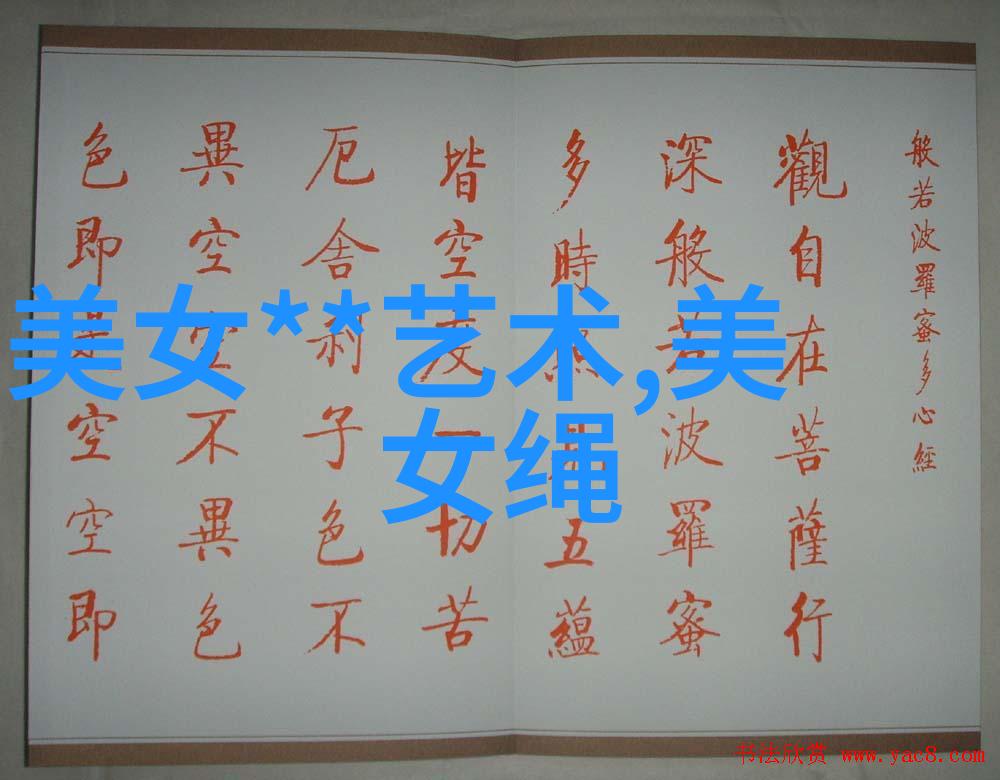 般若波羅蜜多心經
觀自在菩薩行
深般若波羅蜜
多時照見五蘊
皆空度一切苦
厄舍利子色不
異空空不異色
色即是空空即
美女**艺术,美
女绳
书法欣赏 www.yac8.com